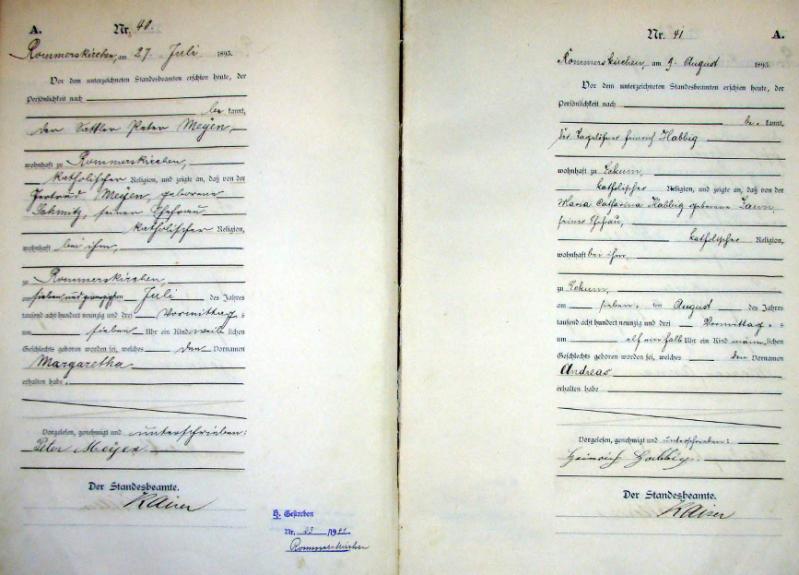 A.
Nr. 40.
Rommerskirchen, am 27. Juli 1893.
Vor dem unterzeichneten Standesbeamten erschien heute, der
Persönlichkeit nach
be kannt,
der Sattler Peter Meyen,
wohnhaft zu Rommerskirchen,
katholischer Religion, und zeigte an, daß von der
Gertrud Meyen, geborene
Schmitz, seiner Ehefrau
katholischer Religion,
wohnhaft bei ihm,
zu Rommerskirchen,
am sieben und zwanzigsten Juli des Jahres
tausend acht hundert neunzig und drei Vormittag s
um sieben Uhr ein Kind weib lichen
Geschlechts geboren worden sei, welches den Vornamen
Margaretha
erhalten habe.
Vorgelesen, genehmigt und unterschrieben:
Peter Meyer
Der Standesbeamte.
Kaiser
H. Gestorben
Nr. 23 /19
Rommerskirchen
Nr. 41
A.
Rommerskirchen, am 9. August 1893.
Vor dem unterzeichneten Standesbeamten erschien heute, der
Persönlichkeit nach
be kannt,
der Tagelöhner Heinrich Habbig
wohnhaft zu Eckum,
katholischer Religion, und zeigte an, daß von der
Maria Catharina Habbig geborene
seiner Ehefrau,
katholischer Religion,
wohnhaft bei ihm,
zu Eckum,
am sieben ten August des Jahres
tausend acht hundert neunzig und drei Vormittag s
um elf einhalb Uhr ein Kind männ lichen
Geschlechts geboren worden sei, welches den Vornamen
Andreas
erhalten habe
Vorgelesen, genehmigt und unterschrieben:
Heinrich Habbig
Der Standesbeamte.
Kaiser